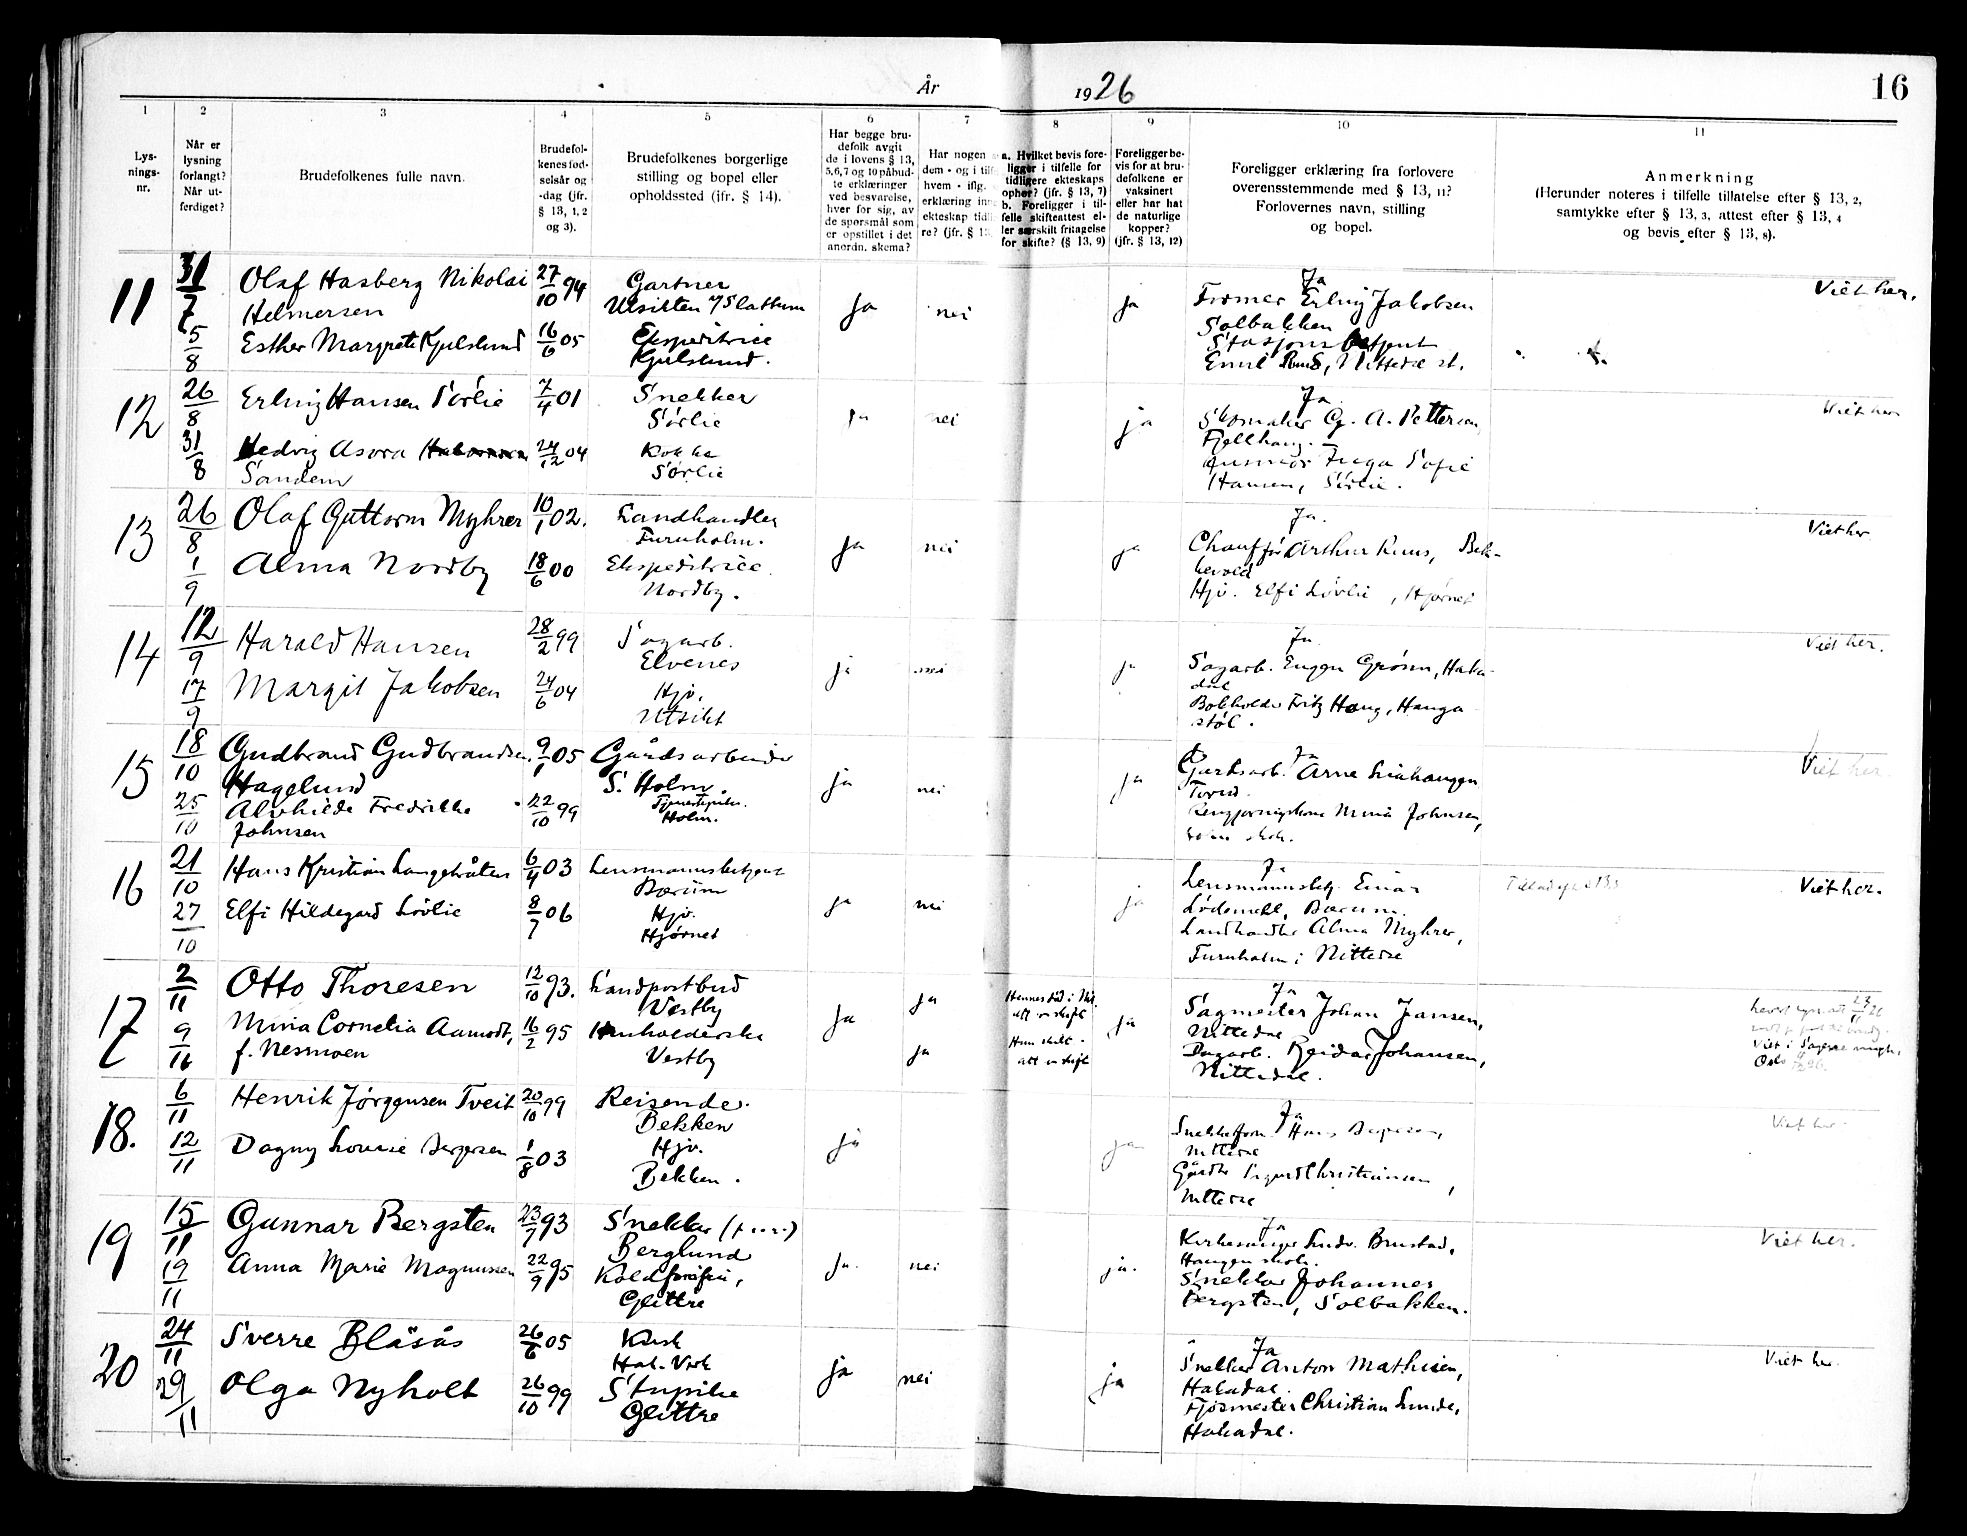 År 1926
16
1
2
3
4
5
6
7
8
9
10
11
Lys-
nings-
nr.
Når er
lysning
forlangt?
Når ut-
ferdiget?
Brudefolkenes fulle navn.
Brudefol-
kenes fød-
selsår og
-dag (jfr.
§ 13, 1, 2
og 3).
Brudefolkenes borgerlige
stilling og bopel eller
opholdssted (jfr. § 14).
Har begge bru-
defolk avgit
de i lovens § 13,
5, 6, 7 og 10 påbud-
te erklæringer
ved besvarelse,
hver for sig, av
de spørsmål som
er opstillet i det
anordn. skema?
Har nogen
dem - og i tilf
hvem - iflg.
erklæring inn
ekteskap tidl
re? (jfr. § 13
a. Hvilket bevis fore-
ligger i tilfelle for
tidligere ekteskaps
ophør? (jfr. § 13, 7)
b. Foreligger i til-
felle skifteattest el-
ler særskilt fritagelse
for skifte? (§ 13, 9)
Foreligger be-
vis for at bru-
defolkene er
vaksinert
eller har hat
de naturlige
kopper?
(jfr. § 13, 12)
Foreligger erklæring fra forlovere
overensstemmende med § 13, 11?
Forlovernes navn, stilling
og bopel.
Anmerkning
(Herunder noteres i tilfelle tillatelse efter § 13, 2,
samtykke efter § 13, 3, attest efter § 13, 4
og bevis efter § 13, 8).
11
31/7
5/8
Olaf Hasberg Nikolai
Helmersen
Esther Margrete Kjulslund
27/10 94
16/6 05
Gartner
Utsikten /Slattum
Ekspeditrice
Kjulslund.
ja
nei
ja
Ja
Former Erling Jakobsen
Solbakken
Stasjonsbetjent
Emil Ruud, Nittedal st.
Viet her.
12
26/8
31/8
Erling Hansen Sørlie
Hedvig Asora
Sandem
7/4 01
24/12 04
Snekker
Sørlie
Kokke
Sørlie
ja
nei
ja
Ja.
Skomaker G. A. Pettersen,
Fjellhaug.
Inga Sofie
Hansen, Sørlie.
Viet her
13
26/8
1/9
Olaf Guttorm Myhrer
Alma Nordby
10/1 02.
18/6 00
Landhandler
Furuholm.
Ekspeditrice.
Nordby.
ja
nei
ja
Ja.
Chauffør Arthur Ruus, Bek-
kevold
Hjv. Elfi Løvlie, Hjørnet
Viet her
14
12/9
17/9
Harald Hansen
Margit Jakobsen
28/2 99
24/6 04
Sagarb.
Elvenes
Hjv.
Utsikt
ja
nei
ja
Ja.
Sagarb. Eugen Grøsen, Haka-
dal
Bokholder Fritz Haug, Hauga-
støl.
Viet her.
15
18/10
25/10
Gudbrand Gudbrandsen
Hagelund
Alvhilde Fredrikke
Johnsen
9/1 05
22/10 99
Gårdsarbeider
S. Holm.
Tjenestepike.
Holm.
ja
nei
ja
Ja
Gardsarb. Arne Linhaugen
Mina Johnsen,
Viet her.
16
21/10
27/10
Hans Kristian Langebråten
Elfi Hildegard Løvlie
6/4 03
8/7 06
Lensmannsbetjent
Bærum
Hjv.
Hjørnet
ja
nei
ja
Ja
Lensmannsbetj. Einar
Lødemel, Bærum.
Landhandler Alma Myhrer,
Furuholm i Nittedal
Viet her.
17
2/11
9/11
Otto Thoresen
Mina Cornelia Aamodt,
f. Nesmoen
12/10 93.
16/2 95
Landpostbud
Vestby
Husholderske
Vestby
ja
ja
ja
ja
Ja
Sagmester Johan Jansen,
Nittedal
Dagarb. Reidar Johansen,
Nittedal.
Oslo
18.
6/11
12/11
Henrik Jørgensen Tveit
Dagny Lovise Bergersen
20/10 99
1/8 03
Reisende.
Bekken
Hjv.
Bekken.
ja
ja
Ja
Hans Bergersen,
Nittedal
Sigurd Christiansen,
Nittedal
Viet her.
19
15/11
19/11
Gunnar Bergsten
Anna Marie Magnussen
23/7 93
22/9 95
Snekker
Berglund
Glittre
ja.
nei
ja.
Ja
Kirkesanger Ludv. Brustad,
Haugen skole.
Snekker Johannes
Bergsten, Solbakken.
Viet her.
20
24/11
29/11
Sverre Blåsås
Olga Nyholt
26/6 05
26/10 99
Kusk
Hak. Verk
Stupike
Glittre
ja
nei
ja
Ja
Snekker Anton Mathisen,
Hakadal.
Fjøsmester Christian Lunde,
Hakadal.
Viet her.